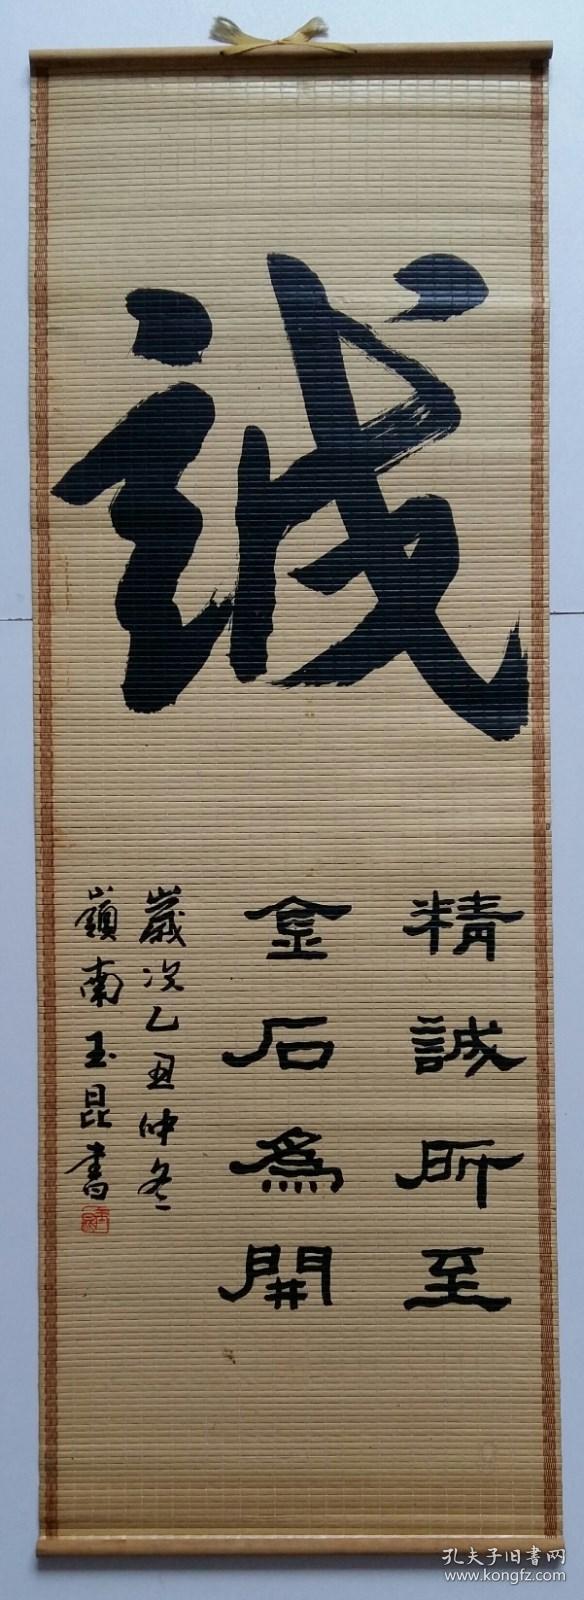 誠
精誠所至
金石為開
歲次乙丑仲冬
嶺南玉昆書
孔夫子旧書网
www.kongfz.com